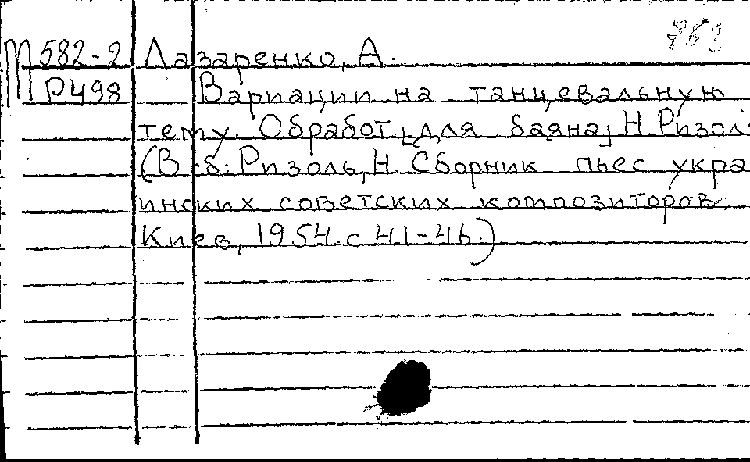 М 582-2 Лазаренко, А.
Р498 Вариации на танцевальную
тему. Обработ[для баяна] Н. Ризоль.
(В сб: Ризоль, Н. Сборник пьес укра
инских советских композиторов.
Киев, 1954. с 41-46.)